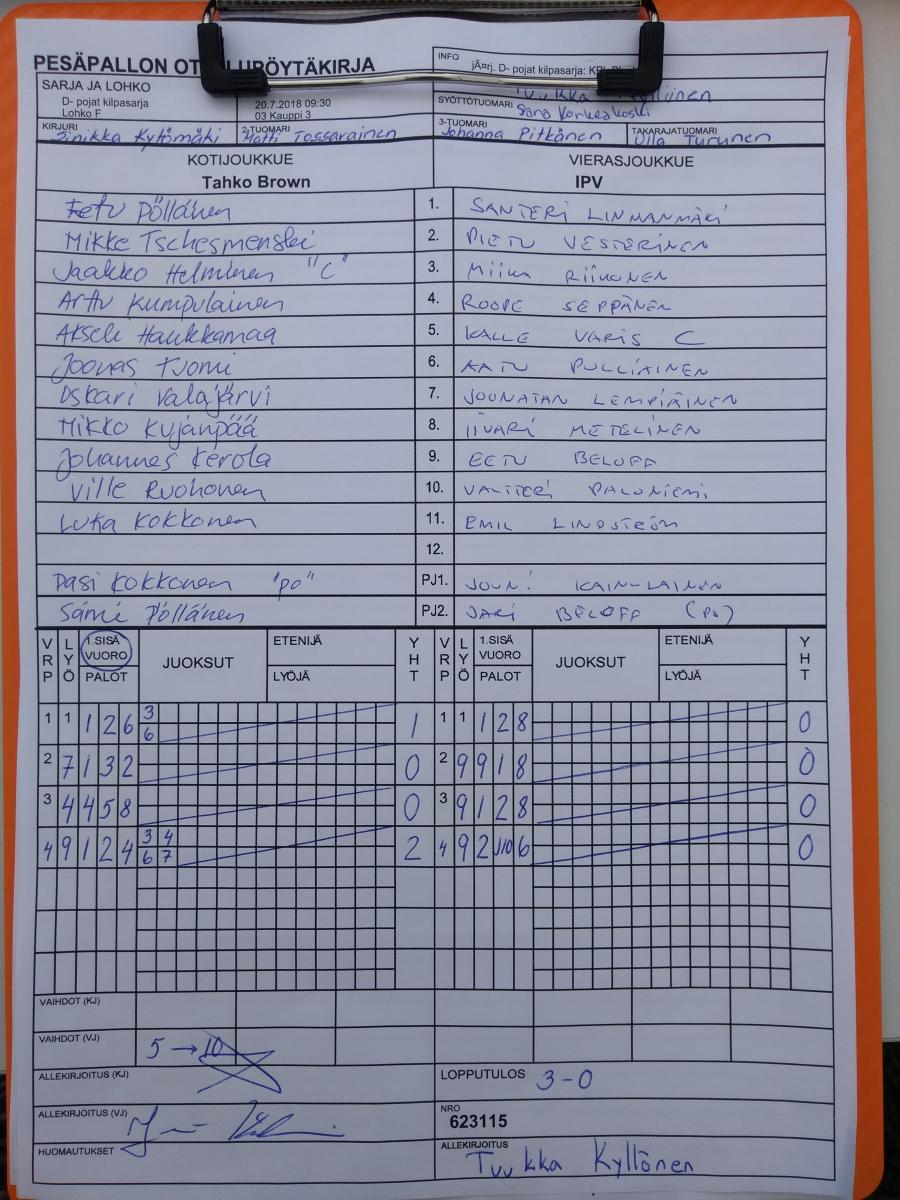 PESÄPALLON OT LUPÖYTÄKIRJA
INFO
jÄ¤rj. D- pojat kilpasarja:
SARJA JA LOHKO
D- pojat kilpasarja
Lohko F
20.7.2018 09:30
03 Kauppi 3
SYÖTTÖTUOMARI
KIRJURI
Sinikka Kytömäki
2-TUOMARI
Matti Tossavainen
3-TUOMARI
Johanna Pitkänen
TAKARAJATUOMARI
Ulla Turunen
KOTIJOUKKUE
Tahko Brown
VIERASJOUKKUE
IPV
Eetu Pöllänen 1. SANTERI LINMANMÄKI
Mikke Tschesmenski 2. PIETU VESTERINEN
Jaakko Helminen "C" 3. MIIKA RIIKONEN
Arttu Kumpulainen 4. ROOPE SEPPÄNEN
Akseli Haukkamaa 5. KALLE VARIS C
Joonas Tuomi 6. AATU PULLIAINEN
Oskari Valajärvi 7. JOONATAN LEMPIÄINEN
Mikko Kujanpää 8. IIVARI METELINEN
Johannes Kerola 9. EETU BELOFF
Ville Ruohonen 10. VALTTERI PALONIEMI
Luka Kokkonen 11. EMIL LINDSTRÖM
12.
Pasi Kokkonen "po" PJ1. JOUNI KAINULAINEN
Sami Pöllänen PJ2. JARI BELOFF (PJ)
VRP LYÖ 1.SISÄ VUORO PALOT JUOKSUT ETENIJÄ LYÖJÄ YHT VRP LYÖ 1.SISÄ VUORO PALOT JUOKSUT ETENIJÄ LYÖJÄ YHT
1 1 1 2 6 3 6 1 1 1 1 2 8 0
2 7 1 3 2 0 2 9 9 1 8 0
3 4 4 5 8 0 3 9 1 2 8 0
4 9 1 2 4 3 4 6 7 2 4 9 2 J10 6 0
VAIHDOT (KJ)
VAIHDOT (VJ)
5 → 10
ALLEKIRJOITUS (KJ)
LOPPUTULOS 3-0
ALLEKIRJOITUS (VJ)
NRO
623115
HUOMAUTUKSET
ALLEKIRJOITUS
Tuukka Kyllönen